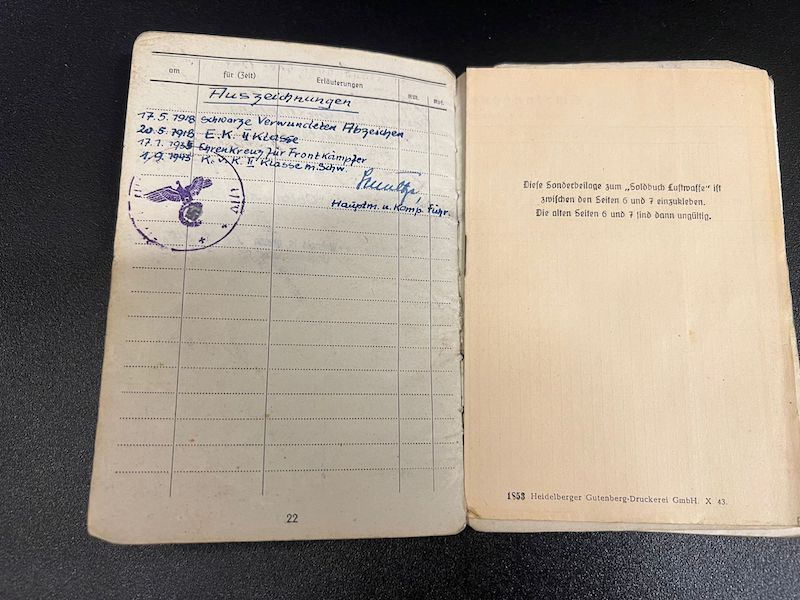 am für (Zeit) Erläuterungen
Auszeichnungen
17.5.1918 schwarze Verwundeten Abzeichen
20.5.1918 E.K. II Klasse
17.1.1935 Ehrenkreuz für Frontkämpfer
1.9.1943 K.V.K. II Klasse m. Schw.
Hauptm. u. Komp. Führ.
22
Diese Sonderbeilage zum „Soldbuch Luftwaffe" ist
zwischen den Seiten 6 und 7 einzukleben.
Die alten Seiten 6 und 7 sind dann ungültig.
1853 Heidelberger Gutenberg-Druckerei GmbH. X 43.